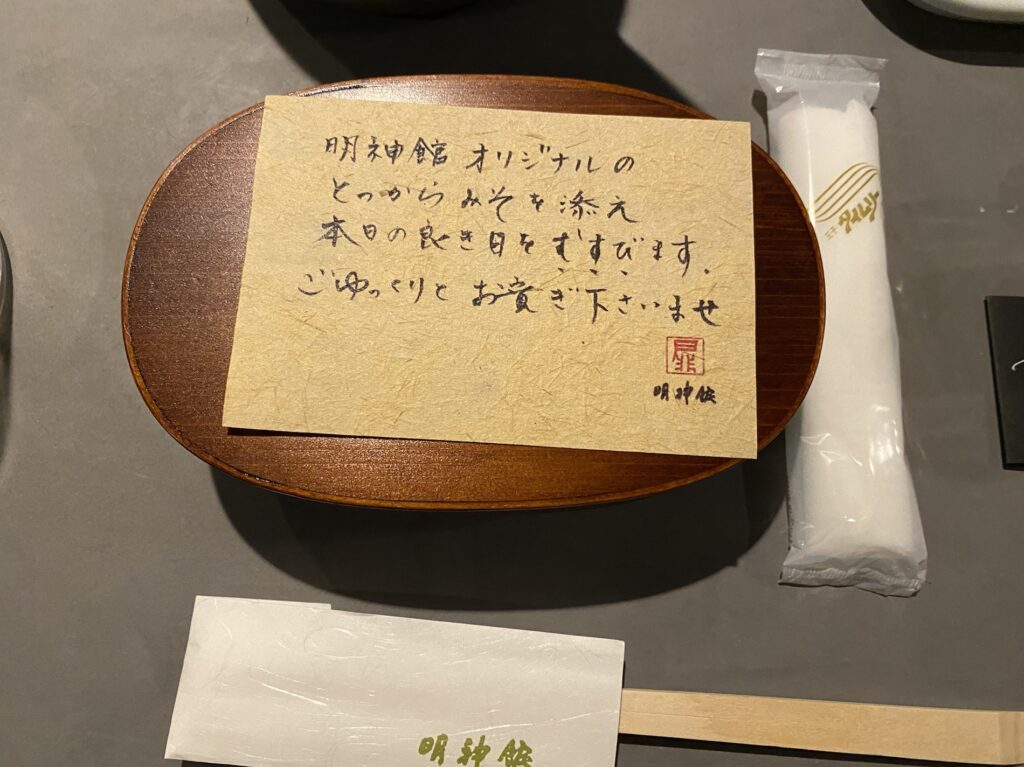 明神館 オリジナルの
とっからみそを添え
本日の良き日をむすびます.
ごゆっくりと お寛ぎ下さいませ
明神館
明神館